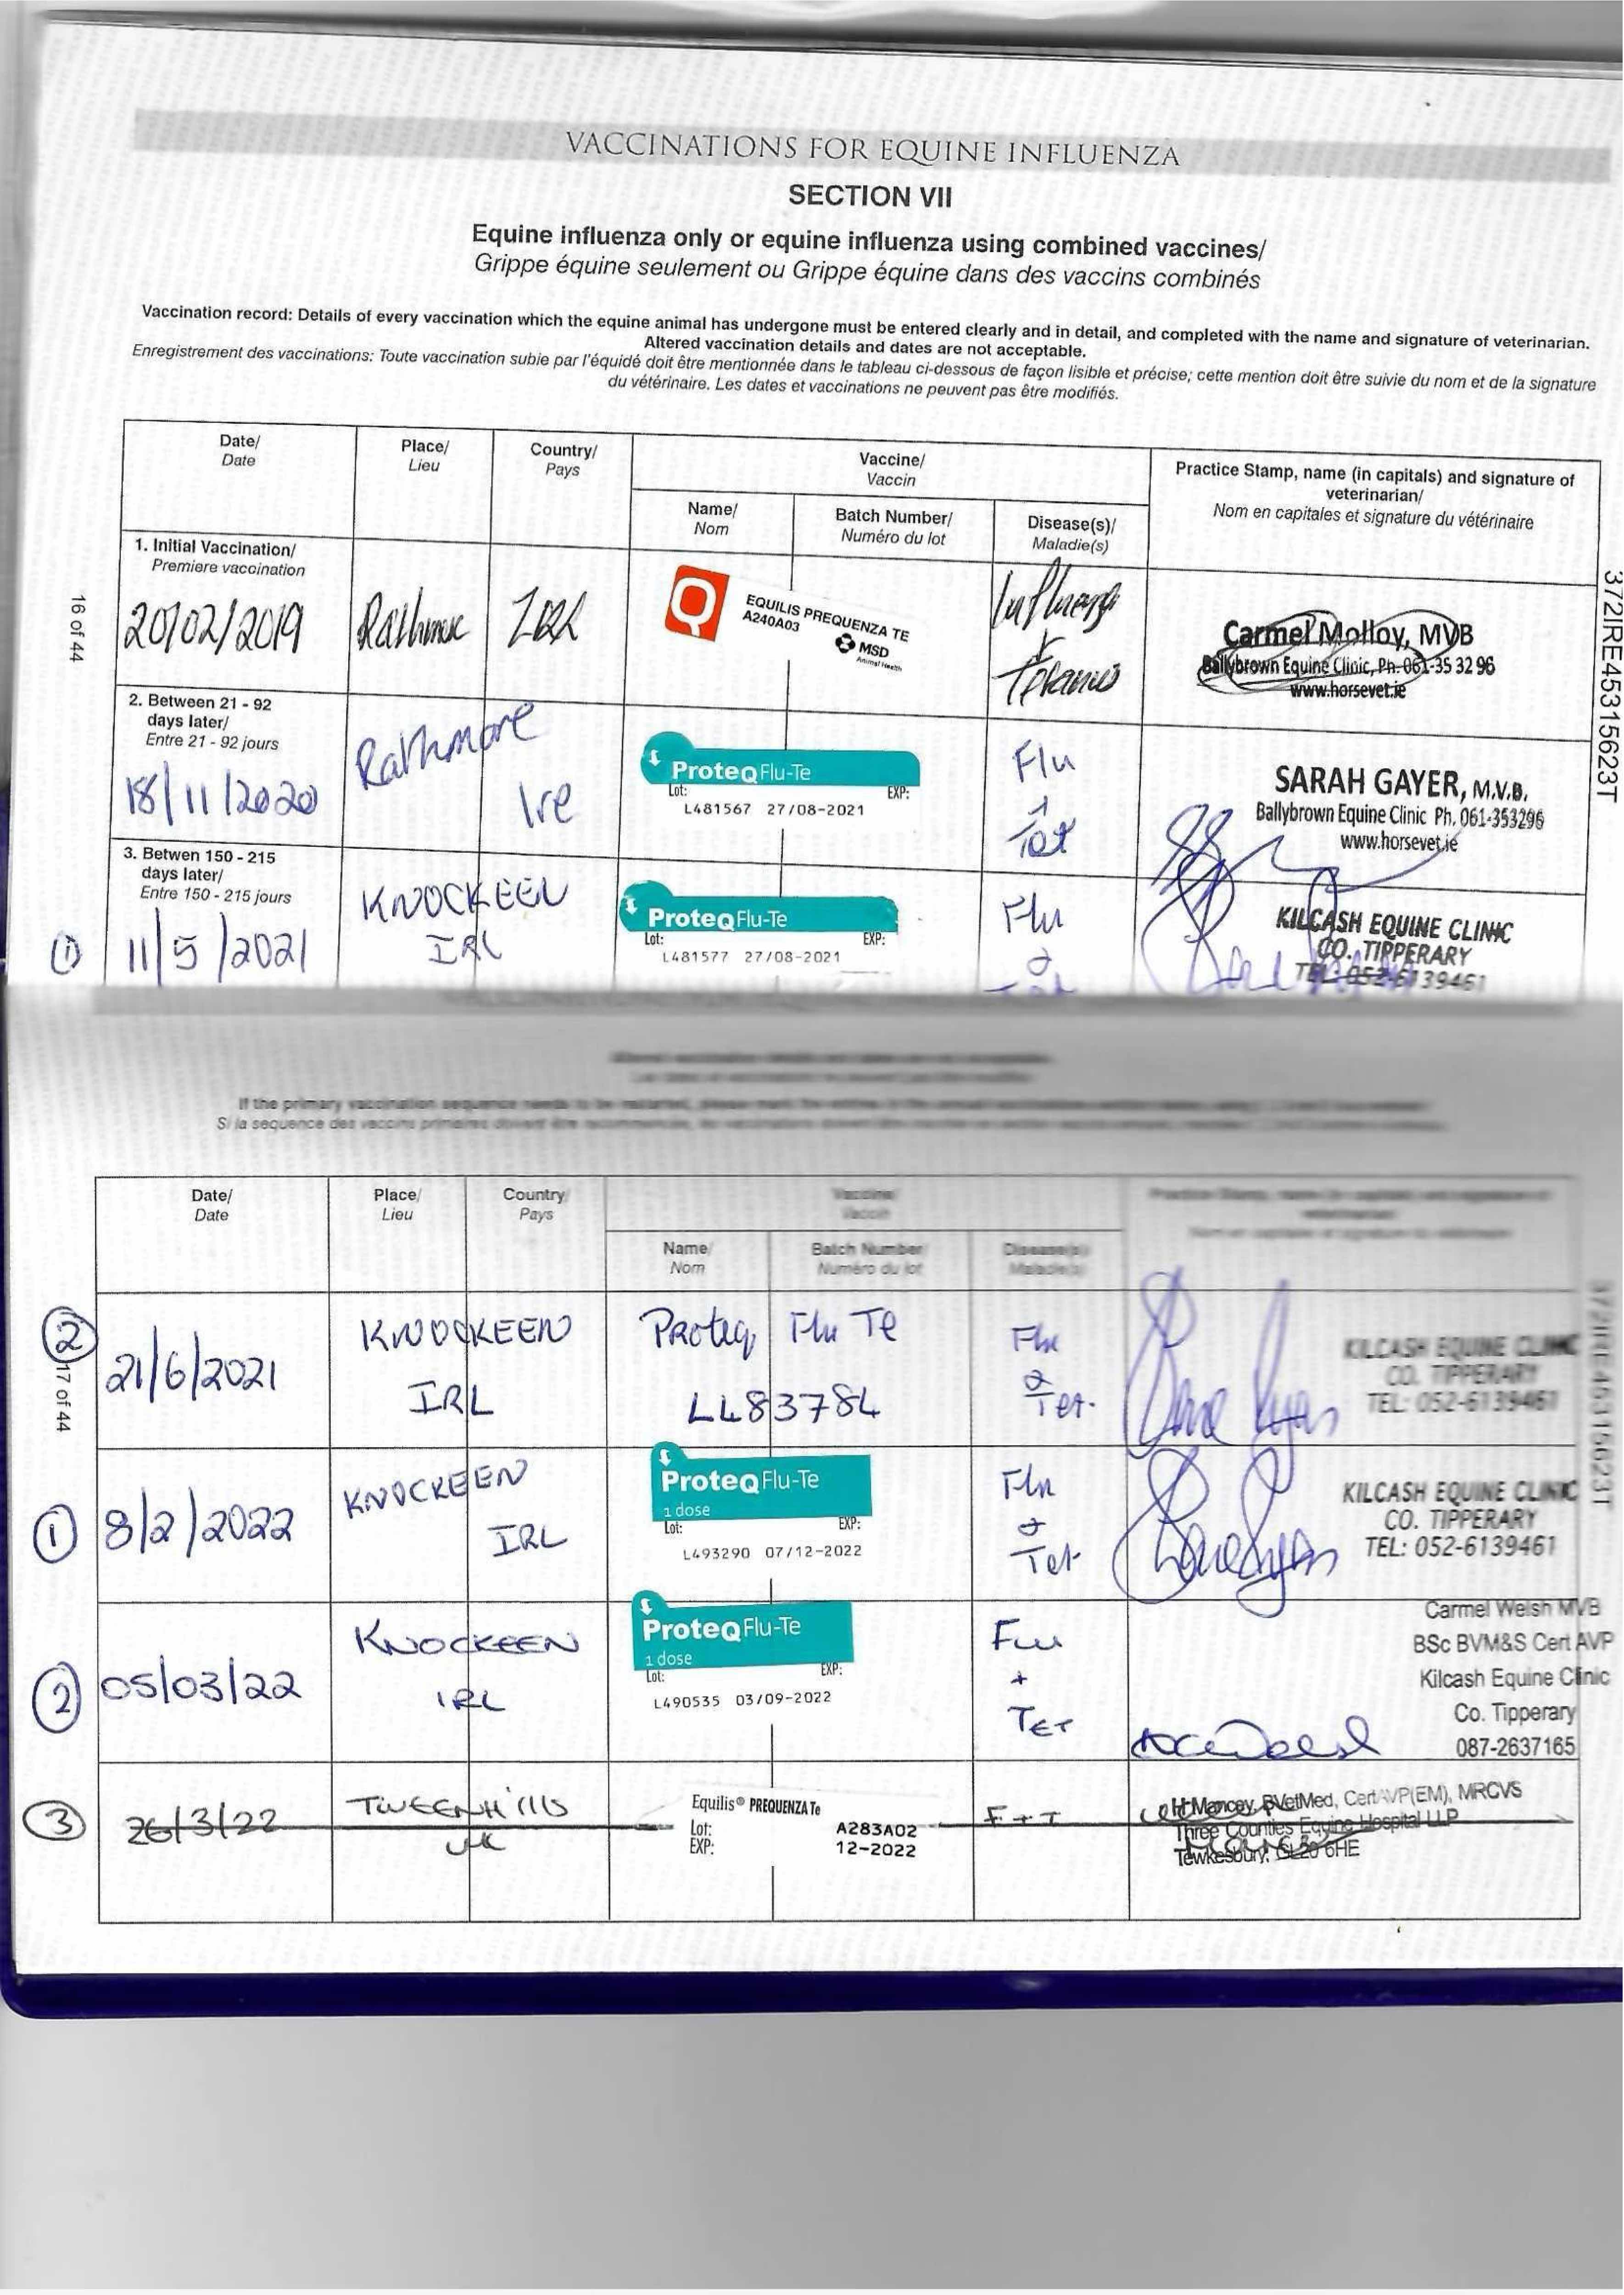 VACCINATIONS FOR EQUINE INFLUENZA
SECTION VII
Equine influenza only or equine influenza using combined vaccines/
Grippe équine seulement ou Grippe équine dans des vaccins combinés
Vaccination record: Details of every vaccination which the equine animal has undergone must be entered clearly and in detail, and completed with the name and signature of veterinarian.
Altered vaccination details and dates are not acceptable.
Enregistrement des vaccinations: Toute vaccination subie par l'équidé doit être mentionnée dans le tableau ci-dessous de façon lisible et précise; cette mention doit être suivie du nom et de la signature
du vétérinaire. Les dates et vaccinations ne peuvent pas être modifiés.
Date/
Date
Place/
Lieu
Country/
Pays
Vaccine/
Vaccin
Name/
Nom
Batch Number/
Numéro du lot
Disease(s)/
Maladie(s)
Practice Stamp, name (in capitals) and signature of
veterinarian/
Nom en capitales et signature du vétérinaire
16 of 44
372IRE45315623T
1. Initial Vaccination/
Premiere vaccination
20/02/2019
Rathmore
EQUILIS PREQUENZA TE
A240A03
MSD
Animal Health
Influenza
+
Tetanus
Carmel Molloy, MVB
Ballybrown Equine Clinic, Ph. 061-35 32 96
www.horsevet.ie
2. Between 21 - 92
days later/
Entre 21 - 92 jours
18/11/2020
Rathmore
Ire
ProteQ Flu-Te
Lot: EXP:
L481567 27/08-2021
Flu
+
Tet
SARAH GAYER, M.V.B.
Ballybrown Equine Clinic Ph. 061-353296
www.horsevet.ie
3. Betwen 150 - 215
days later/
Entre 150 - 215 jours
① 11/5/2021
KNOCKEEN
IRL
ProteQ Flu-Te
Lot: EXP:
L481577 27/08-2021
Flu
&
KILCASH EQUINE CLINIC
CO. TIPPERARY
TEL: 052-6139461
If the primary vaccination sequence needs to be restarted, please mark the entries
Si la sequence des vaccins primaires doivent être
Date/
Date
Place/
Lieu
Country/
Pays
Vaccine/
Vaccin
Name/
Nom
Batch Number/
Numéro du lot
Disease(s)/
Maladie(s)
17 of 44
372IRE45315623T
② 21/6/2021
KNOCKEEN
IRL
Proteq Flu Te
L483784
Flu
&
Tet.
KILCASH EQUINE CLINIC
CO. TIPPERARY
TEL: 052-6139461
① 8/2/2022
KNOCKEEN
IRL
ProteQ Flu-Te
1 dose
Lot: EXP:
L493290 07/12-2022
Flu
&
Tet
KILCASH EQUINE CLINIC
CO. TIPPERARY
TEL: 052-6139461
② 05/03/22
KNOCKEEN
IRL
ProteQ Flu-Te
1 dose
Lot: EXP:
L490535 03/09-2022
Flu
+
TET
Carmel Welsh MVB
BSc BVM&S Cert AVP
Kilcash Equine Clinic
Co. Tipperary
087-2637165
③ 26/3/22
TWEENHills
UK
Equilis® PREQUENZA Te
Lot: A283A02
EXP: 12-2022
F+T
H Mancey, BVetMed, CertAVP(EM), MRCVS
Three Counties Equine Hospital LLP
Tewkesbury, GL20 6HE